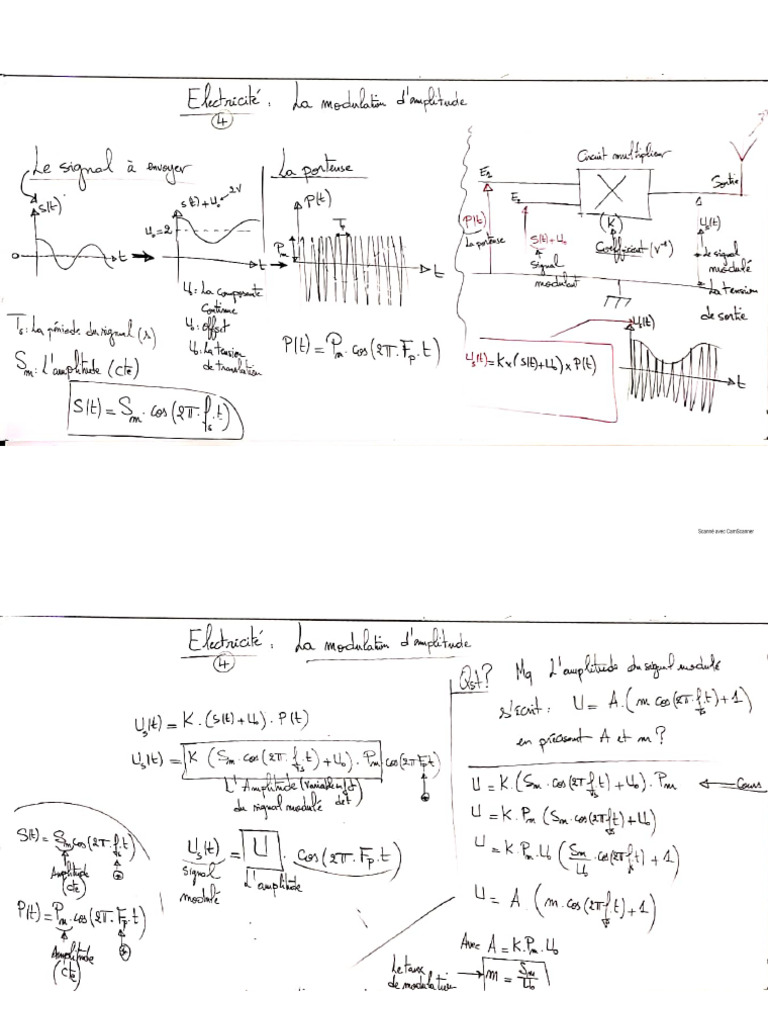 Electricité : La modulation d'amplitude
4
Le signal à envoyer
S(t)
t
s(t) + U₀
2V
U₀ = 2
t
U₀ : La composante
continue
U₀ : offset
U₀ : La tension
de translation
Ts : La période du signal (s)
Sm : L'amplitude (cte)
S(t) = Sm . cos(2π . fs . t)
La porteuse
P(t)
Pm
t
P(t) = Pm . cos(2π . Fp . t)
Circuit multiplieur
E1
E2
X
Sortie
P(t)
La porteuse
S(t) + U₀
signal
modulant
(K)
Coefficient (V⁻¹)
Us(t)
Le signal
modulé
La tension
de sortie
Us(t)
t
Us(t) = K x (S(t) + U₀) x P(t)
Scanné avec CamScanner
Electricité : La modulation d'amplitude
4
Us(t) = K . (S(t) + U₀) . P(t)
Us(t) = K (Sm . cos(2π . fs . t) + U₀) . Pm cos(2π Fp t)
L'Amplitude (variable en fct
de t)
du signal modulé
S(t) = Sm cos(2π . fs . t)
Amplitude
(cte)
P(t) = Pm . cos(2π . Fp . t)
Amplitude
(cte)
Us(t) = U . cos(2π . Fp . t)
signal
modulé
L'amplitude
Qst ? Mq L'amplitude du signal modulé
s'écrit : U = A . (m cos(2π fs . t) + 1)
en précisant A et m ?
U = K . (Sm . cos(2π fs . t) + U₀) . Pm ← Cours
U = K . Pm (Sm . cos(2π fs . t) + U₀)
U = K Pm . U₀ (Sm/U₀ . cos(2π fs . t) + 1)
U = A . (m . cos(2π fs . t) + 1)
Avec A = K . Pm . U₀
Le taux
de modulation
m = Sm/U₀